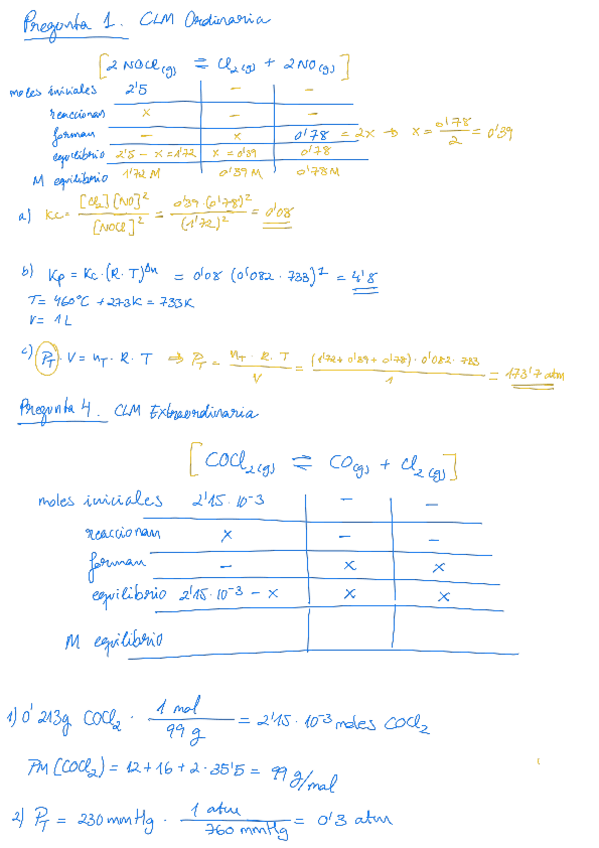 Pregunta 1. CLM Ordinaria
[2 NOCl(g) ⇌ Cl2(g) + 2NO(g)]
moles iniciales 2'5 - -
reaccionan x - -
forman - x 0'78 = 2x → x = 0'78/2 = 0'39
equilibrio 2'5 - x = 1'72 x = 0'39 0'78
M equilibrio 1'72 M 0'39 M 0'78M
a) Kc = [Cl2][NO]²/[NOCl]² = 0'39·(0'78)²/(1'72)² = 0'08
b) Kp = Kc·(R·T)^Δn = 0'08 (0'082·733)¹ = 4'8
T = 460°C + 273K = 733K
V = 1 L
c) PT · V = nT · R · T ⇒ PT = nT · R · T/V = (1'72 + 0'39 + 0'78) · 0'082 · 733/1 = 173'7 atm
Pregunta 4. CLM Extraordinaria
[COCl2(g) ⇌ CO(g) + Cl2(g)]
moles iniciales 2'15·10⁻³ - -
reaccionan x - -
forman - x x
equilibrio 2'15·10⁻³ - x x x
M equilibrio
1) 0'213g COCl2 · 1 mol/99 g = 2'15·10⁻³ moles COCl2
PM (COCl2) = 12 + 16 + 2·35'5 = 99 g/mol
2) PT = 230 mmHg · 1 atm/760 mmHg = 0'3 atm